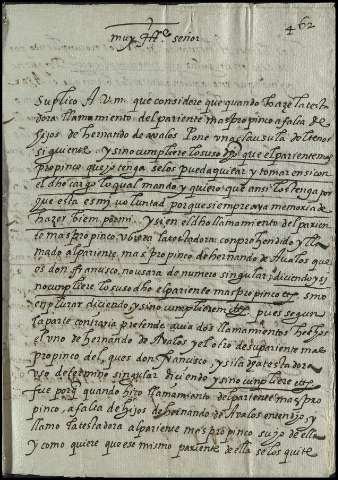 462
muy Ill.e señor
Suplico A V.m. que considere que quando haze la testa
dora llamamiento del pariente mas propinco a falta de
hijos de hernando de avalos Pone una clausula del tenor
siguiente y sino cumpliere lo suso dho que el pariente mas
propinco que yo tenga se los pueda quitar y tomar en si con
el dho cargo lo qual mando y quiero que ansi los tenga por
que esta es mi voluntad porque siempre aya memoria de
hazer bien por mi y si en el dho llamamiento del parien
te mas propinco, ubiera la testadora comprehendido y lla
mado al pariente mas propinco de hernando de Avalos que
es don francisco, no usara de numero singular, diciendo y si
no cumpliere lo suso dho el pariente mas propinco etc sino
en plural diciendo y si no cumplieren etc pues segun
la parte contraria pretende avia dos llamamientos hechos
el uno de hernando de Avalos y el otro de su pariente mas
propinco del, que es don Francisco, y si la testadora
uso de termino singular diciendo y sino cumpliere etc
fue porque quando hizo llamamiento del pariente mas pro
pinco, a falta de hijos de hernando de Avalos entendio, y
llamo la testadora al pariente mas propinco suyo de ella
y como quiere que ese mismo pariente de ella se los quite